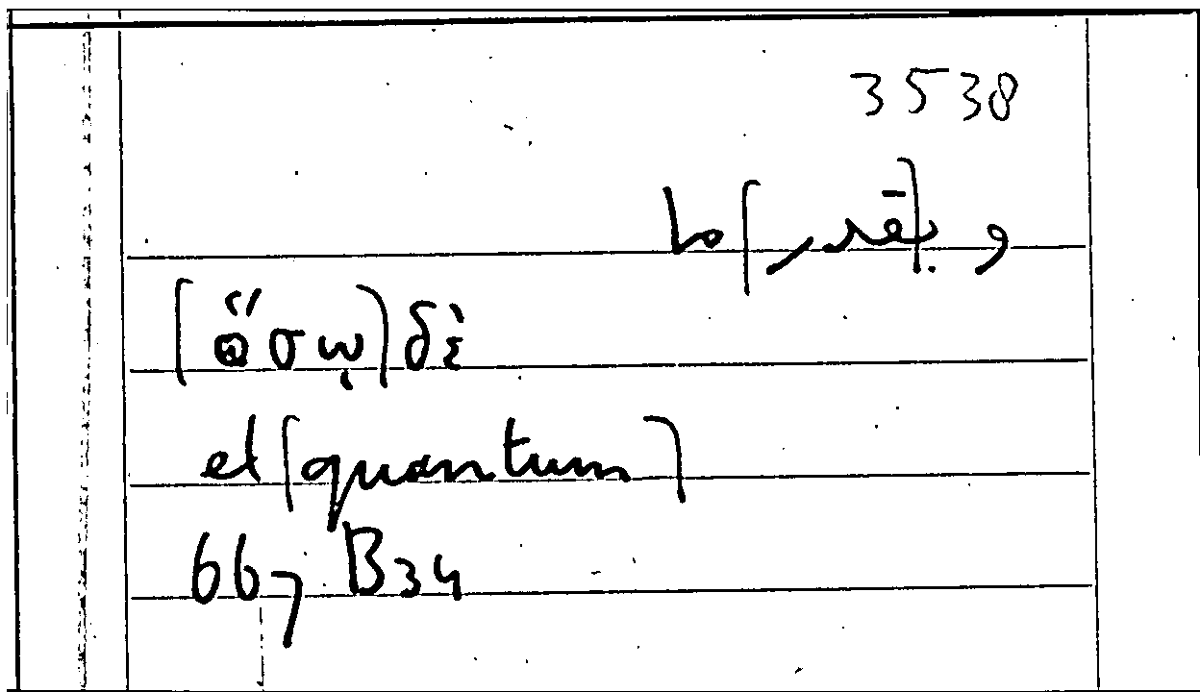 3538
و (بقدر) ما
(ὅσῳ) δὲ
et (quantum)
667 B34